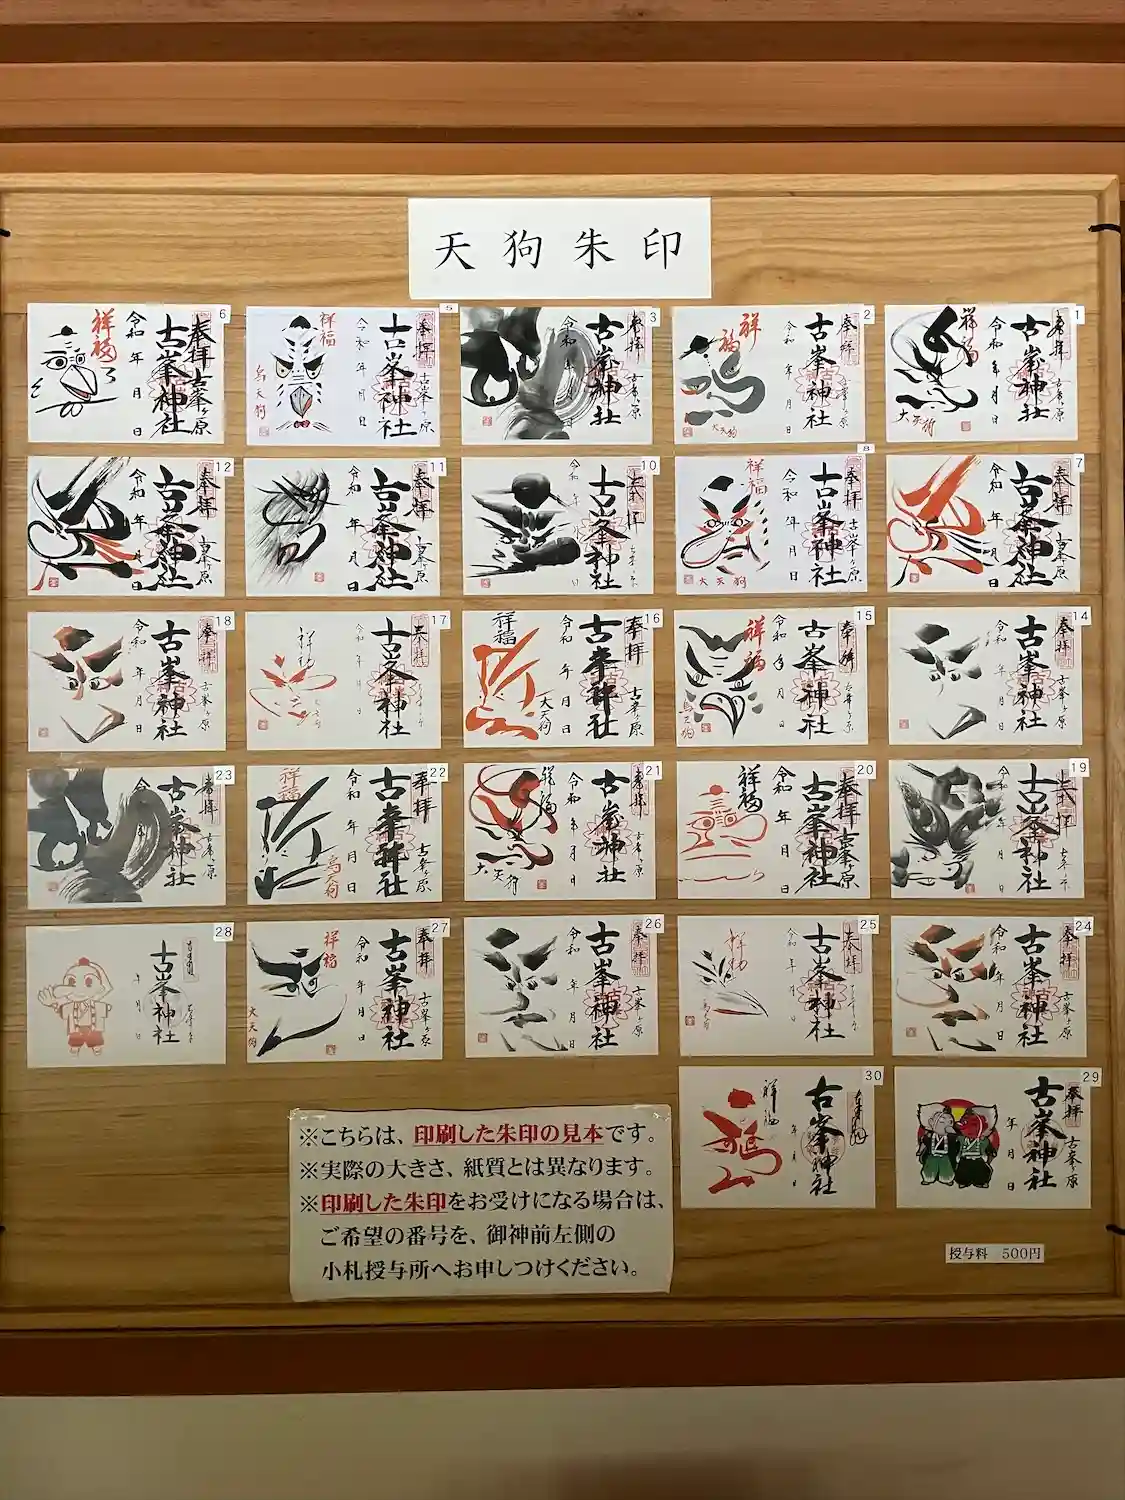 天狗朱印
6
祥福
令和 年 月 日
古峯神社
奉拝
古峯ヶ原
5
祥福
烏天狗
令和 年 月 日
古峯神社
奉拝
古峯ヶ原
3
令和 年 月 日
古峯神社
奉拝
古峯ヶ原
2
祥福
大天狗
令和 年 月 日
古峯神社
奉拝
古峯ヶ原
1
祥福
大天狗
令和 年 月 日
古峯神社
奉拝
古峯ヶ原
12
令和 年 月 日
古峯神社
奉拝
古峯ヶ原
11
令和 年 月 日
古峯神社
奉拝
古峯ヶ原
10
令和 年 月 日
古峯神社
8
祥福
大天狗
令和 年 月 日
古峯神社
奉拝
古峯ヶ原
7
令和 年 月 日
古峯神社
奉拝
古峯ヶ原
18
令和 年 月 日
古峯神社
奉拝
古峯ヶ原
17
令和 年 月 日
古峯神社
奉拝
16
祥福
大天狗
令和 年 月 日
古峯神社
奉拝
古峯ヶ原
15
祥福
烏天狗
令和 年 月 日
古峯神社
奉拝
古峯ヶ原
14
令和 年 月 日
古峯神社
奉拝
古峯ヶ原
23
古峯神社
奉拝
古峯ヶ原
22
祥福
烏天狗
令和 年 月 日
古峯神社
奉拝
古峯ヶ原
21
祥福
大天狗
令和 年 月 日
古峯神社
奉拝
古峯ヶ原
20
祥福
令和 年 月 日
古峯神社
奉拝
古峯ヶ原
19
令和 年 月 日
古峯神社
28
年 月 日
古峯神社
27
祥福
大天狗
令和 年 月 日
古峯神社
奉拝
古峯ヶ原
26
令和 年 月 日
古峯神社
奉拝
古峯ヶ原
25
令和 年 月 日
古峯神社
奉拝
24
令和 年 月 日
古峯神社
奉拝
古峯ヶ原
30
祥福
年 月 日
古峯神社
29
年 月 日
古峯神社
奉拝
古峯ヶ原
※こちらは、印刷した朱印の見本です。
※実際の大きさ、紙質とは異なります。
※印刷した朱印をお受けになる場合は、
ご希望の番号を、御神前左側の
小札授与所へお申しつけください。
授与料 500円